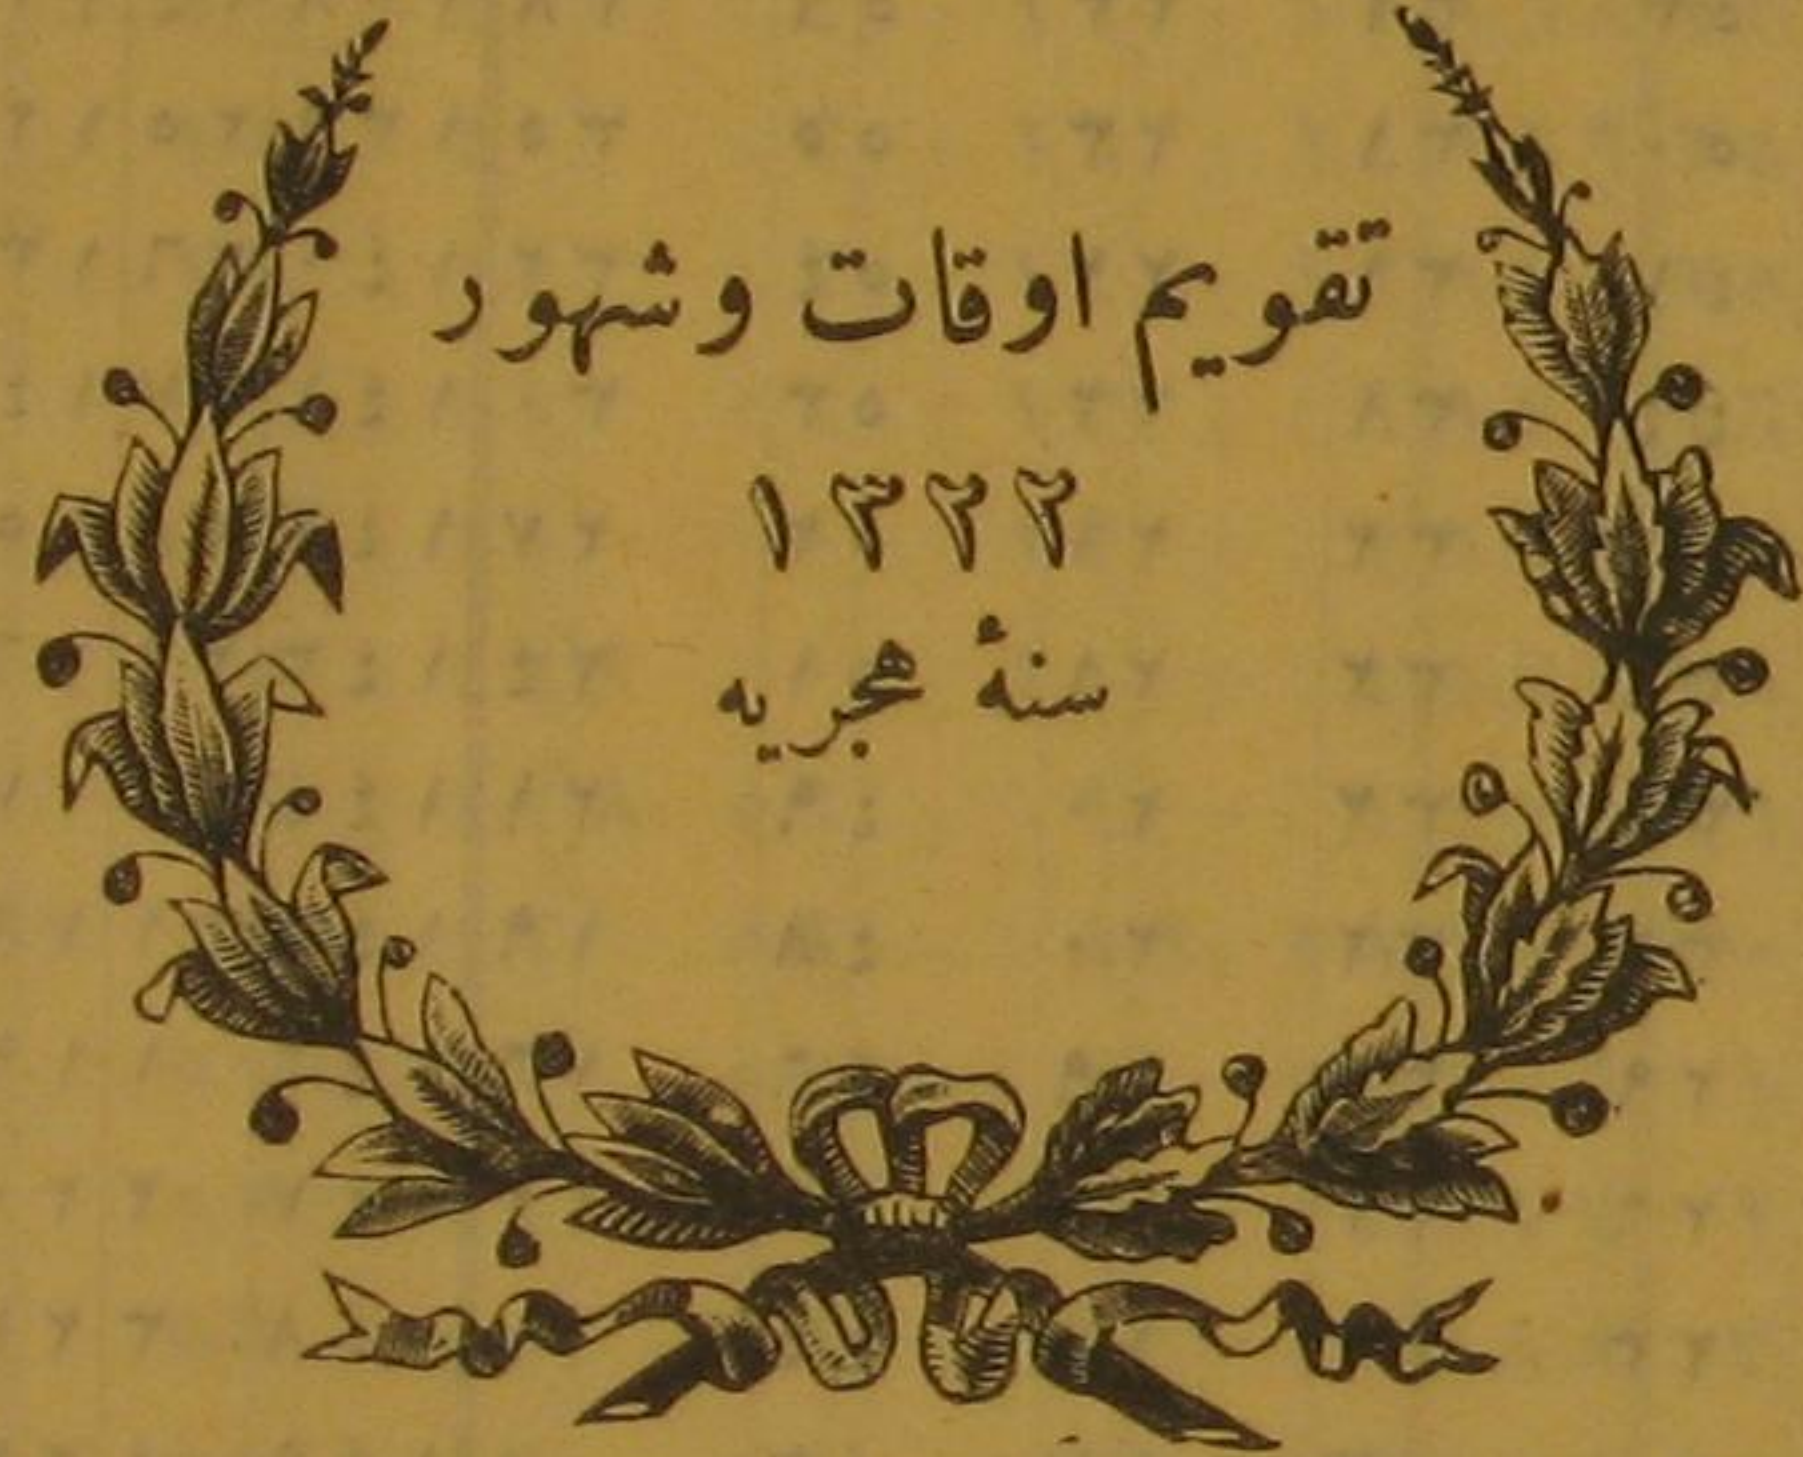 تقويم اوقات وشهور
١٣٢٢
سنهٔ هجريه